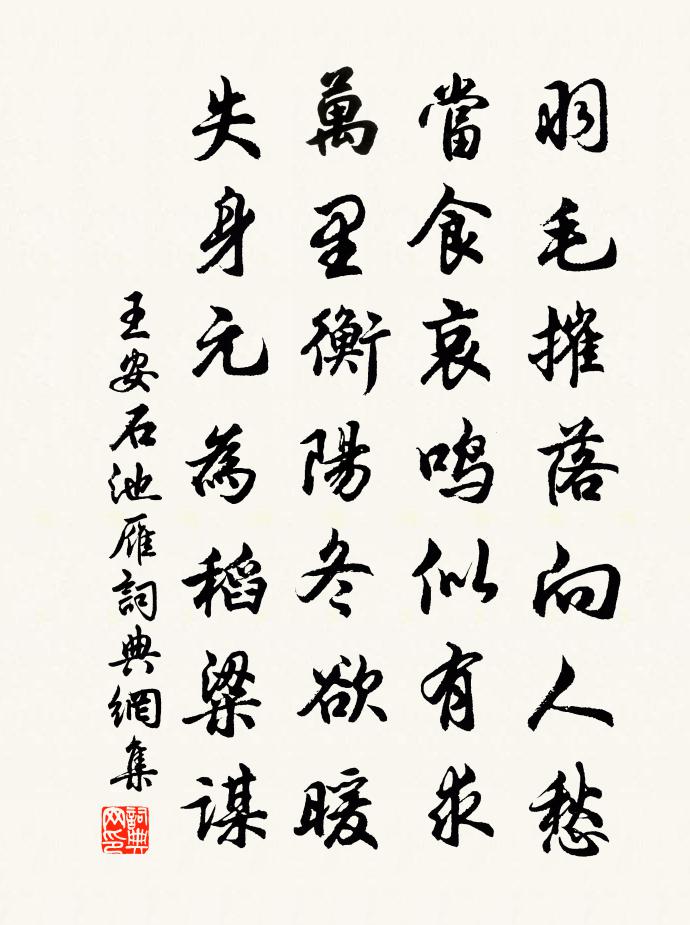 羽毛摧落向人愁
當食哀鳴似有求
萬里衡陽冬欲暖
失身元為稻粱謀
王安石池雁詞典網集
詞典网印